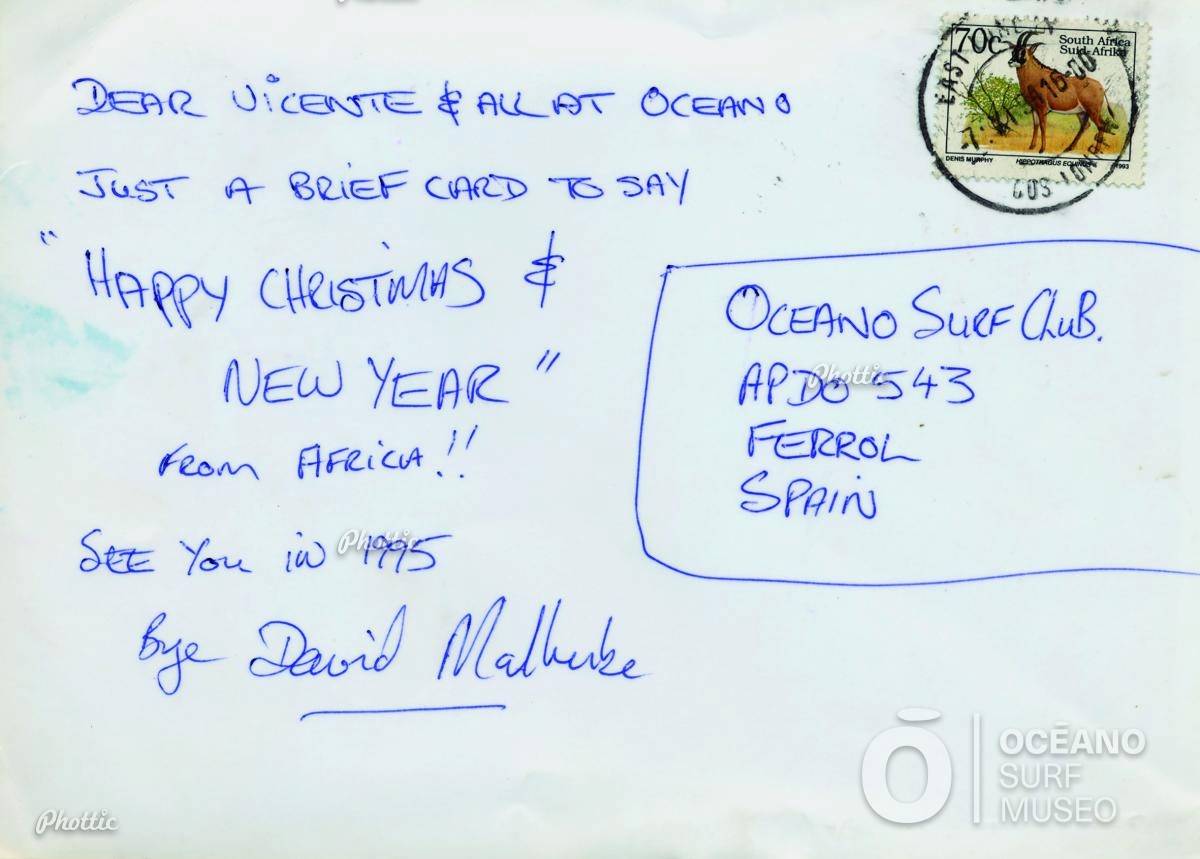 DEAR VICENTE & ALL AT OCEANO
JUST A BRIEF CARD TO SAY
" HAPPY CHRISTMAS &
NEW YEAR "
FROM AFRICA!!
SEE You in 1995
Bye David Malherbe
70c
South Africa
Suid-Afrika
DENIS MURPHY HIPPOTRAGUS EQUINUS 1993
EAST
16-00
OCEANO SURF CLUB.
APDO 543
FERROL
SPAIN
Phottic
Phottic
Phottic
OCÉANO
SURF
MUSEO